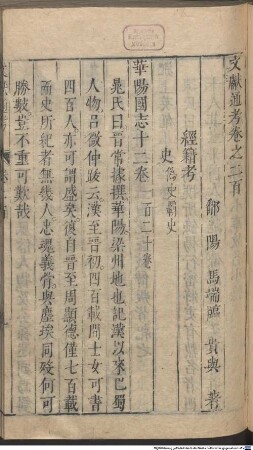 文獻通考卷之二百
鄱陽馬端臨貴與著
經籍考
史 僞史霸史
華陽國志十二卷 一百二十卷
晁氏曰晉常據撰華陽梁州地也記漢以來巴蜀
人物呂微仲跋云漢至晉初四百載間士女可書
四百人亦可謂盛矣復自晉至周顯德僅七百載
而史所紀者無幾人忠魂義骨與塵埃同歿何可
勝數豈不重可歎哉